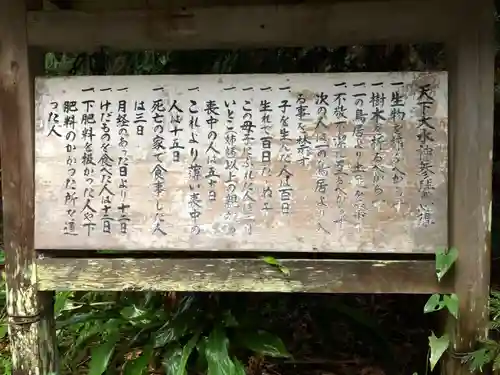 天下大水神参籠心得
一生物を
一樹木を折るべからず
一の鳥居より
一不敬不浄
次の人は一の鳥居より入
る事を禁ず
一子を生んだ人は百日
一生れて百日たゝぬ子
一この母子にふれた人は
一いとこ姉妹以上の親族の
喪中の人は五十日
一これより薄い喪中の
人は十五日
一死亡の家で食事した人
は三日
一月経のあった日より十二日
一けだものを食べた人は十三日
一下肥料を扱かった人や下
肥料のかかった所を通
った人